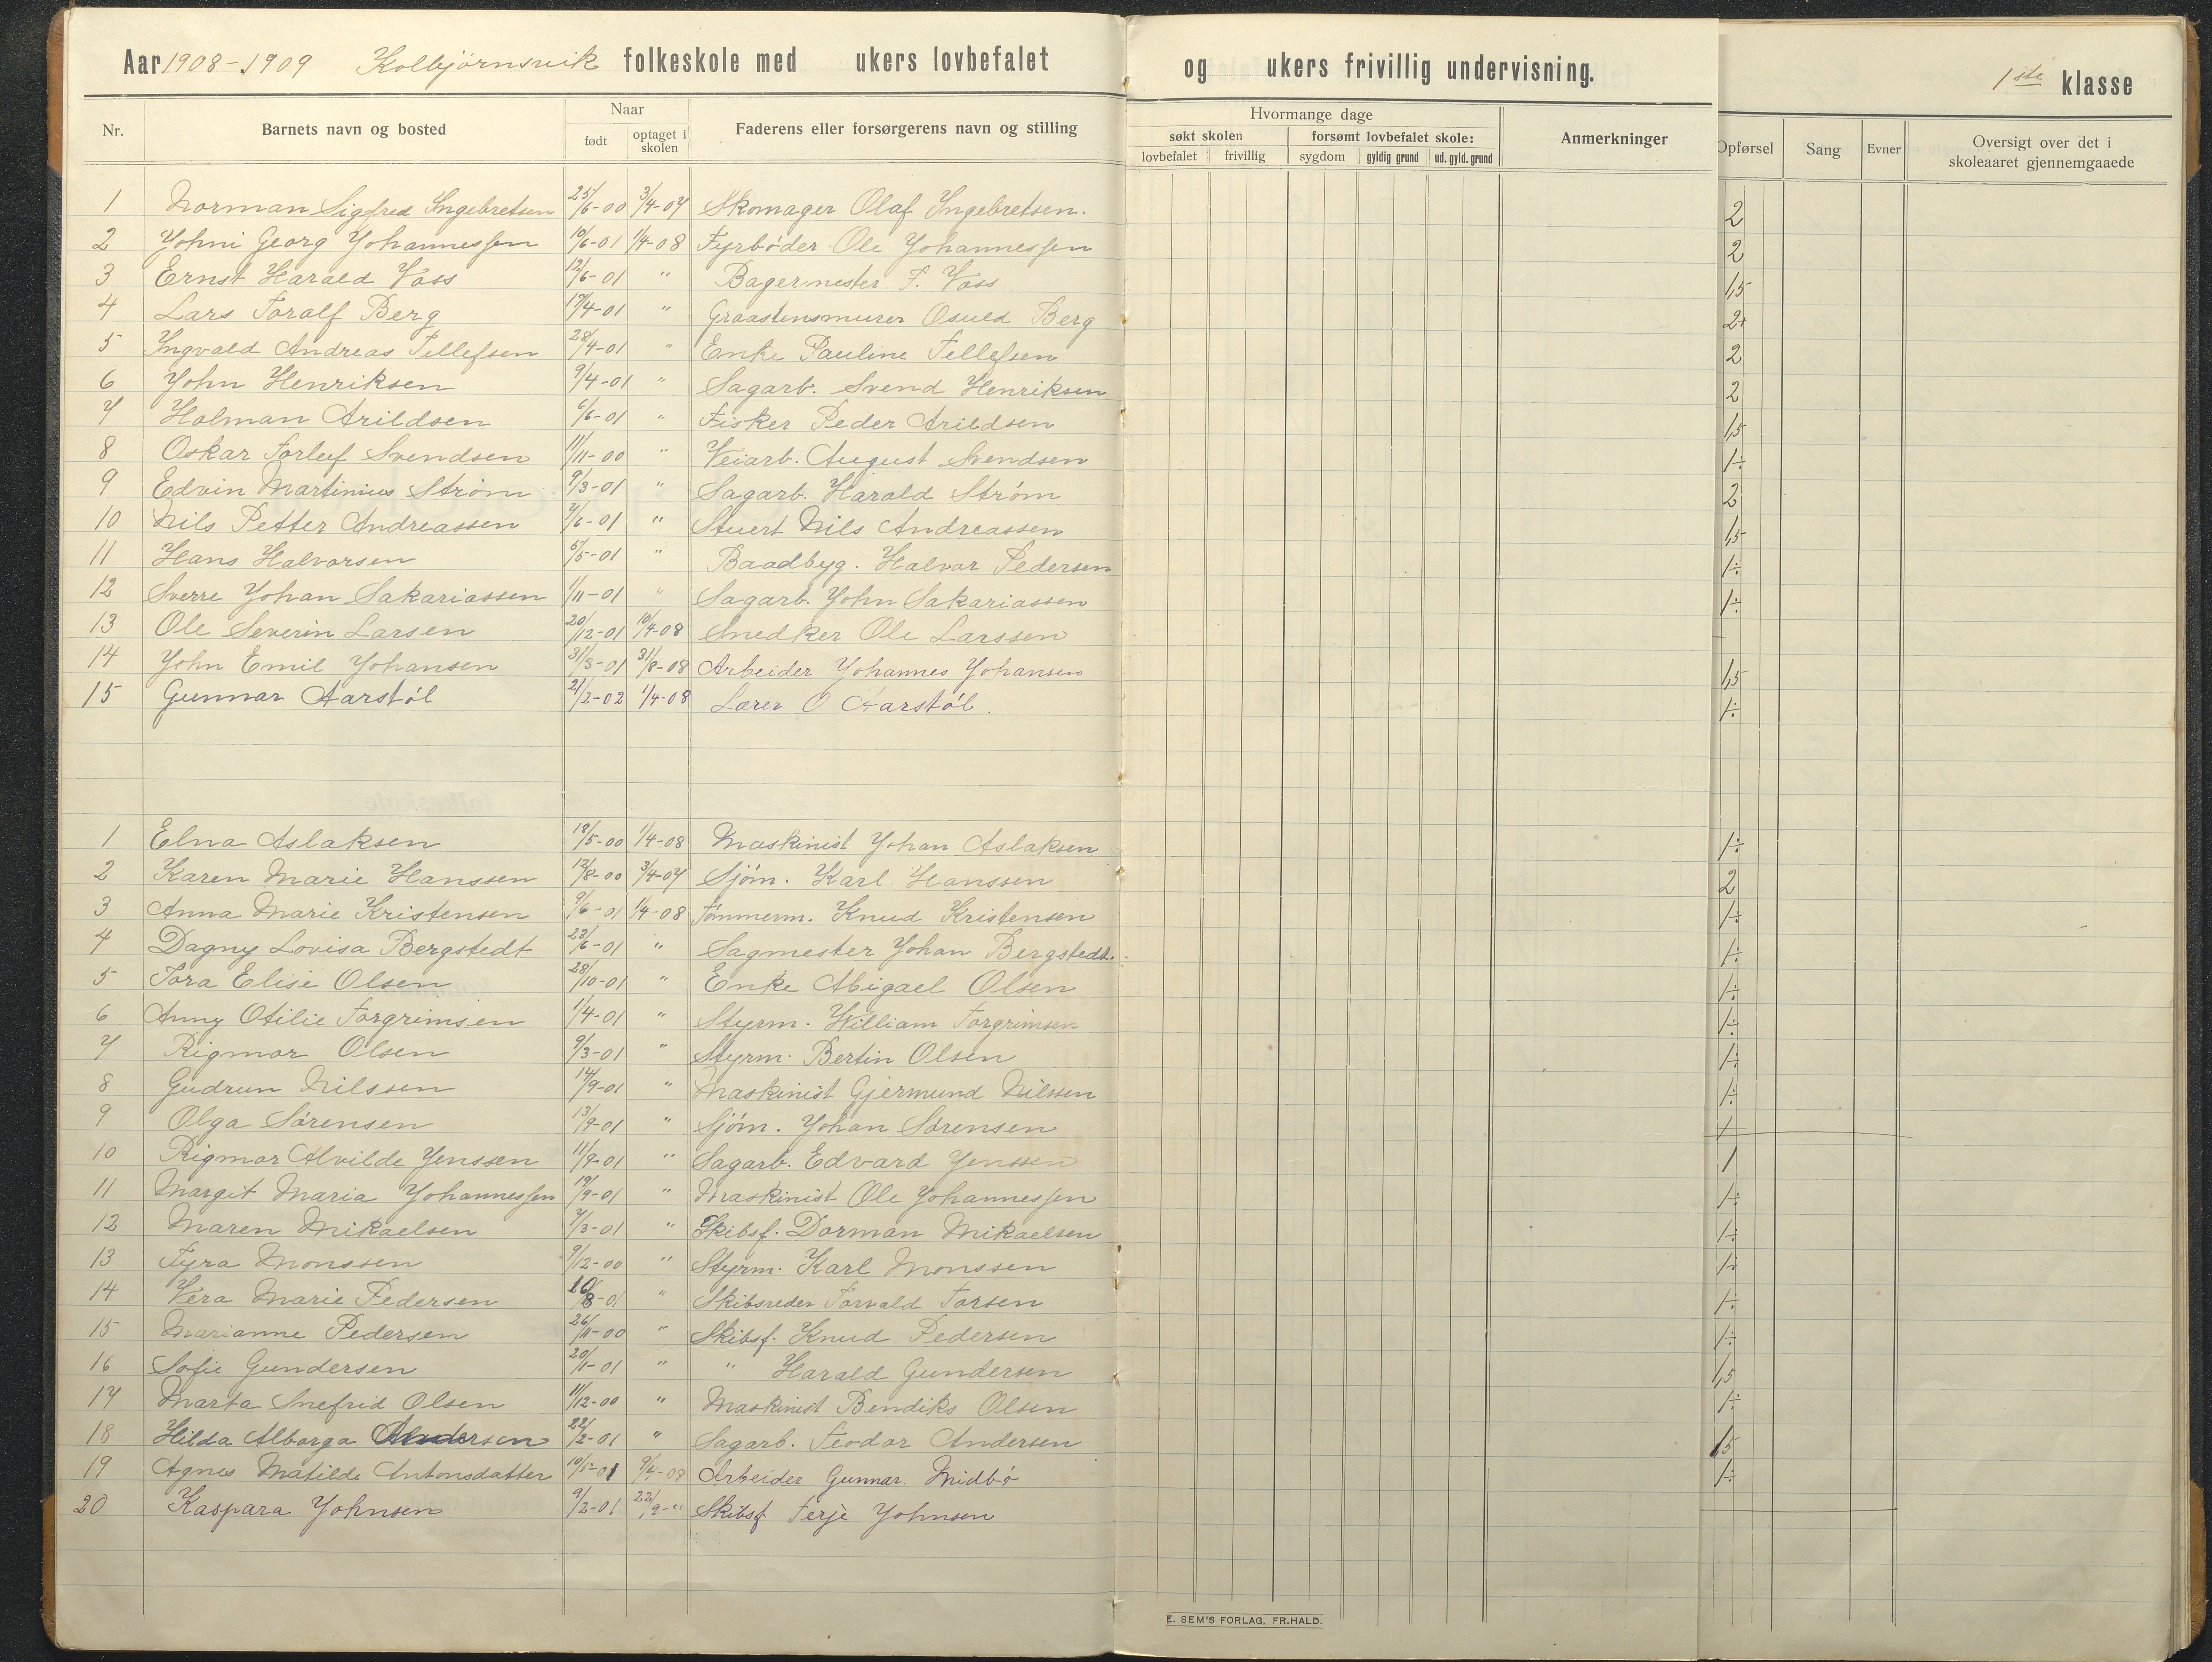 Aar 1908-1909 Kolbjörnsvik folkeskole med ukers lovbefalet og ukers frivillig undervisning. 1ste klasse
Nr. Barnets navn og bosted Naar født optaget i skolen Faderens eller forsørgerens navn og stilling Hvormange dage søkt skolen lovbefalet frivillig forsømt lovbefalet skole: sygdom gyldig grund ud. gyld. grund Anmerkninger Opførsel Sang Evner Oversigt over det i skoleaaret gjennemgaaede
1 Norman Sigfred Ingebretsen 25/6-00 3/4-07 Skomager Olaf Ingebretsen. 2
2 Johni Georg Johannessen 10/6-01 1/4-08 Fyrbøder Ole Johannessen 2
3 Ernst Harald Voss 12/6-01 " Bagermester F. Voss 1,5
4 Lars Toralf Berg 17/4-01 " Graastensmurer Osuld Berg 2+
5 Ingvald Andreas Tellefsen 28/4-01 " Enke Pauline Tellefsen 2
6 John Henriksen 9/4-01 " Sagarb. Svend Henriksen 2
7 Holman Arildsen 6/6-01 " Fisker Peder Arildsen 1,5
8 Oskar Torleif Svendsen 11/11-00 " Veiarb. August Svendsen 1÷
9 Edvin Martinius Strøm 9/3-01 " Sagarb. Harald Strøm 2
10 Nils Petter Andreassen 7/6-01 " Stuert Nils Andreassen 1,5
11 Hans Halvorsen 5/5-01 " Baadbyg. Halvor Pedersen 1÷
12 Sverre Johan Sakariassen 1/11-01 " Sagarb. John Sakariassen 1÷
13 Ole Severin Larsen 20/12-01 10/4-08 Snedker Ole Larssen
14 John Emil Johansen 31/3-01 31/8-08 Arbeider Johannes Johansen 1,5
15 Gunnar Aarstøl 21/2-02 1/4-08 Lærer O Aarstøl. 1÷
1 Elna Aslaksen 18/5-00 1/4-08 Maskinist Johan Aslaksen 1÷
2 Karen Marie Hanssen 12/8-00 3/4-07 Sjøm. Karl Hanssen 2
3 Anna Marie Kristensen 9/6-01 1/4-08 Tømmerm. Knud Kristensen 1÷
4 Dagny Lovisa Bergstedt 23/6-01 " Sagmester Johan Bergstedt. 1÷
5 Tora Elise Olsen 28/10-01 " Enke Abigael Olsen 1÷
6 Anny Otilie Torgrimsen 1/4-01 " Styrm. William Torgrimsen 1÷
7 Rigmor Olsen 9/3-01 " Styrm. Bertin Olsen 1÷
8 Gudrun Nilssen 14/9-01 " Maskinist Gjermund Nilssen 1÷
9 Olga Sørensen 13/9-01 " Sjøm. Johan Sørensen 1
10 Rigmor Alvilde Jenssen 11/9-01 " Sagarb. Edvard Jenssen 1
11 Margit Maria Johannessen 19/9-01 " Maskinist Ole Johannessen 1÷
12 Maren Mikaelsen 7/3-01 " Skibsf. Dorman Mikaelsen 1÷
13 Tyra Monssen 9/12-00 " Styrm. Karl Monssen 1÷
14 Vera Marie Pedersen 10/8-01 " Skibsreder Torvald Torsen 1÷
15 Marianne Pedersen 26/11-00 " Skibsf. Knud Pedersen 1÷
16 Sofie Gundersen 20/1-01 " " Harald Gundersen 1,5
17 Marta Snefrid Olsen 11/12-00 " Maskinist Bendiks Olsen 1÷
18 Hilda Alborga Andersen 22/2-01 " Sagarb. Teodor Andersen 1,5
19 Agnes Matilde Antonsdatter 10/5-01 9/4-08 Arbeider Gunnar Midbø 1÷
20 Kaspara Johnsen 9/2-01 22/9-" Skibsf Terje Johnsen
E. SEM'S FORLAG, FR.HALD.